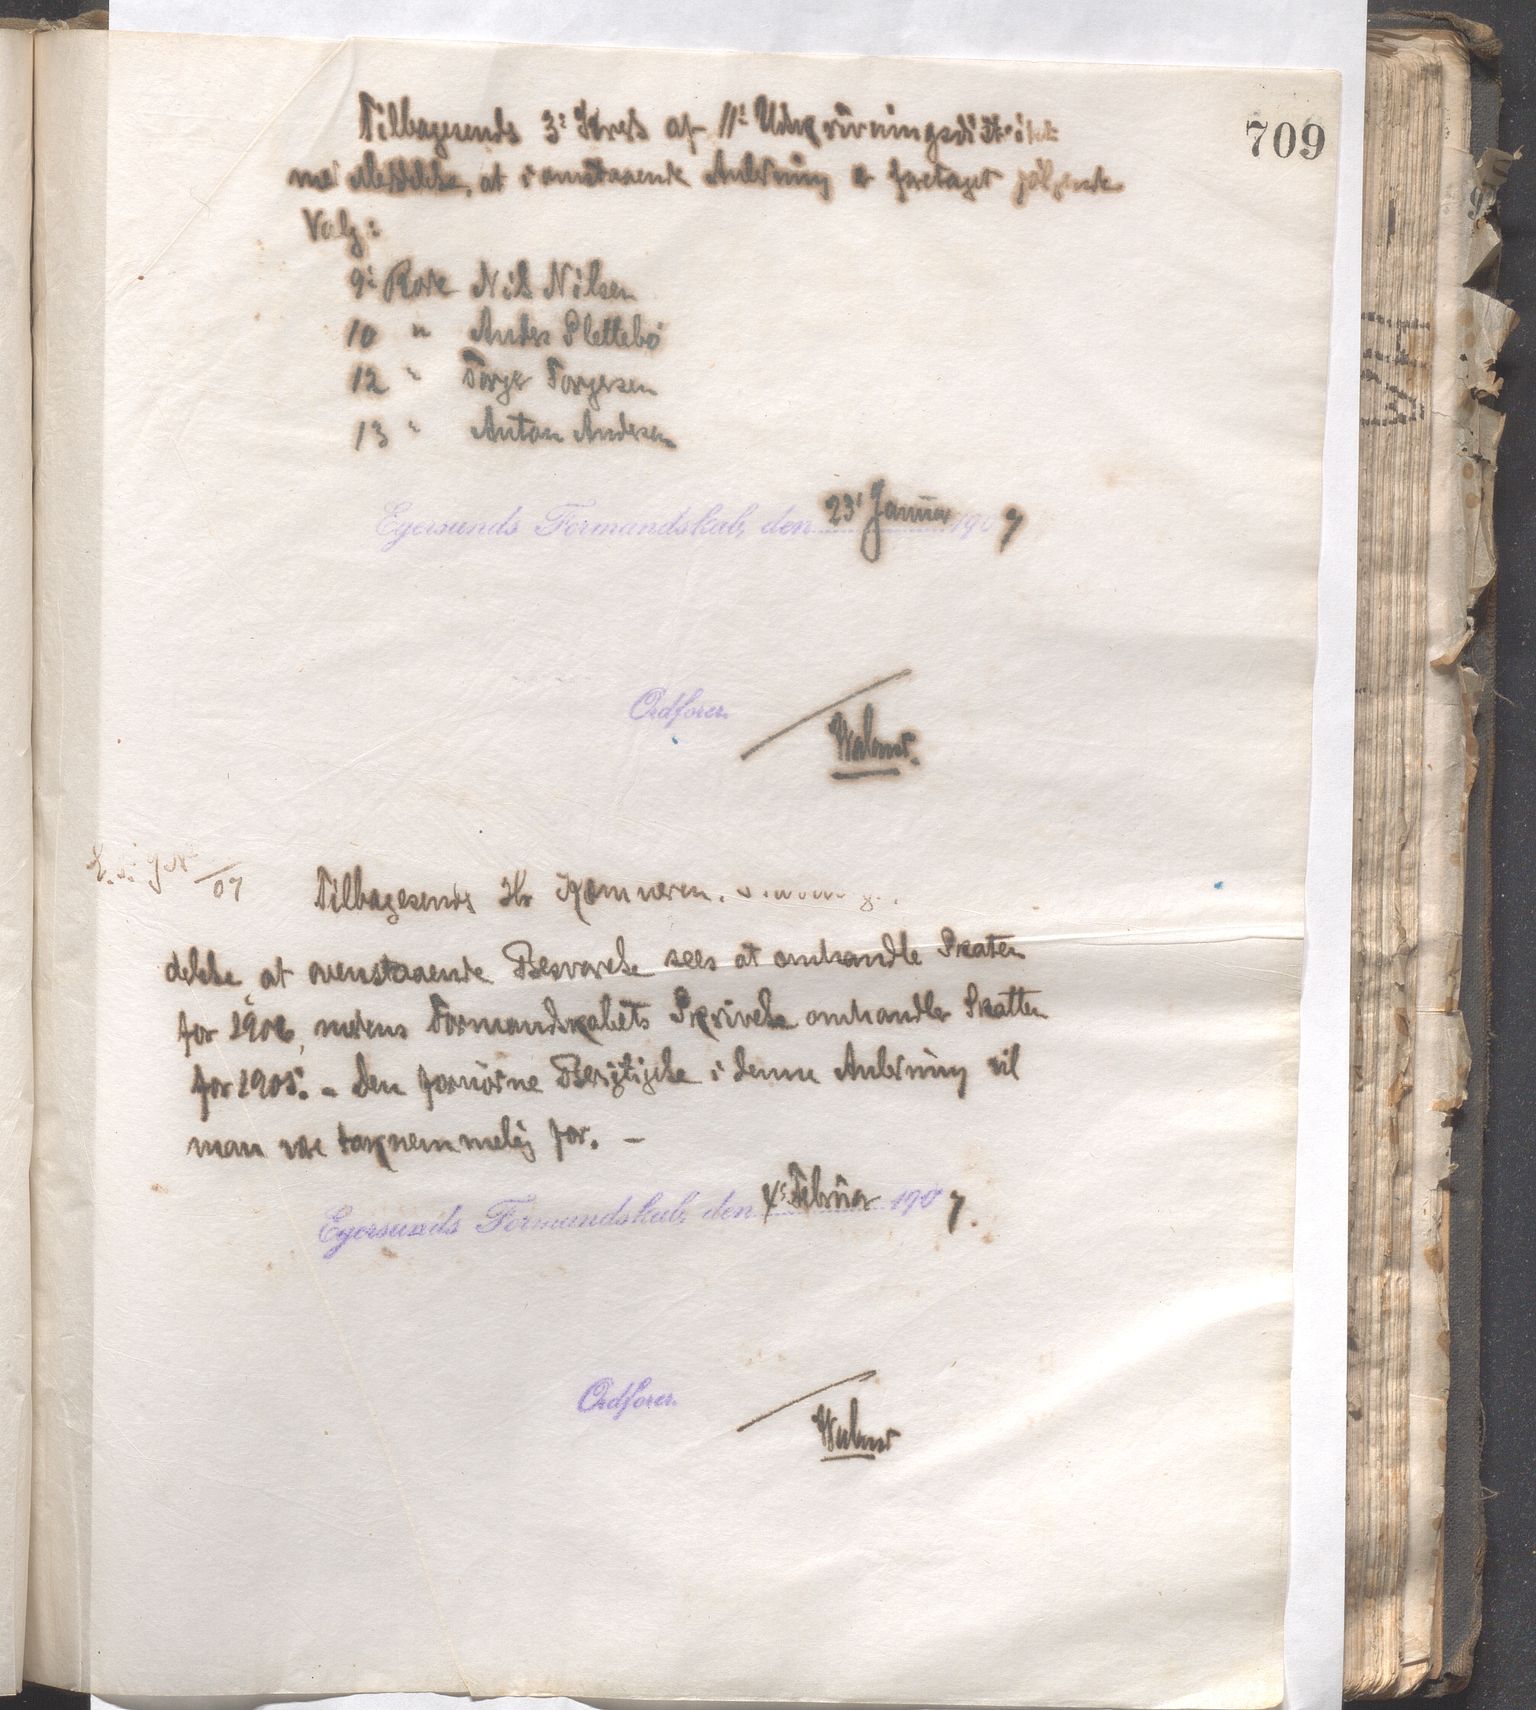 709
Tilbagesends 3: Kreds af 11: Udskrivningsdistrikt
med Meddelelse, at i omstaaende Anledning er foretaget følgende
Valg:
9: Rode Nils Nilsen
10 " Anders Slettebø
12 " Torger Torgersen
13 " Anton Andersen
Egersunds Formandskab, den 23' Januar 1907
Ordfører.
07
Tilbagesends Hr Kæmneren.
delelse, at ovenstaaende Besvarelse sees at omhandle Skatten
for 1906, medens Formandskabets Skrivelse omhandler Skatten
for 1905. - Den fornødne Berigtigelse i denne Anledning vil
man være taknemmelig for. -
Egersunds Formandskab, den 4: Februar 1907.
Ordfører.